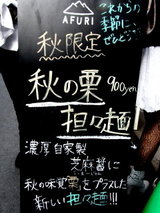 AFURI
これからの
季節に、
ぜひどうぞ
秋限定
秋の栗 900yen
担々麺!
濃厚自家製
芝麻醤に
秋の味覚"栗"をプラスした
新しい担々麺!!!